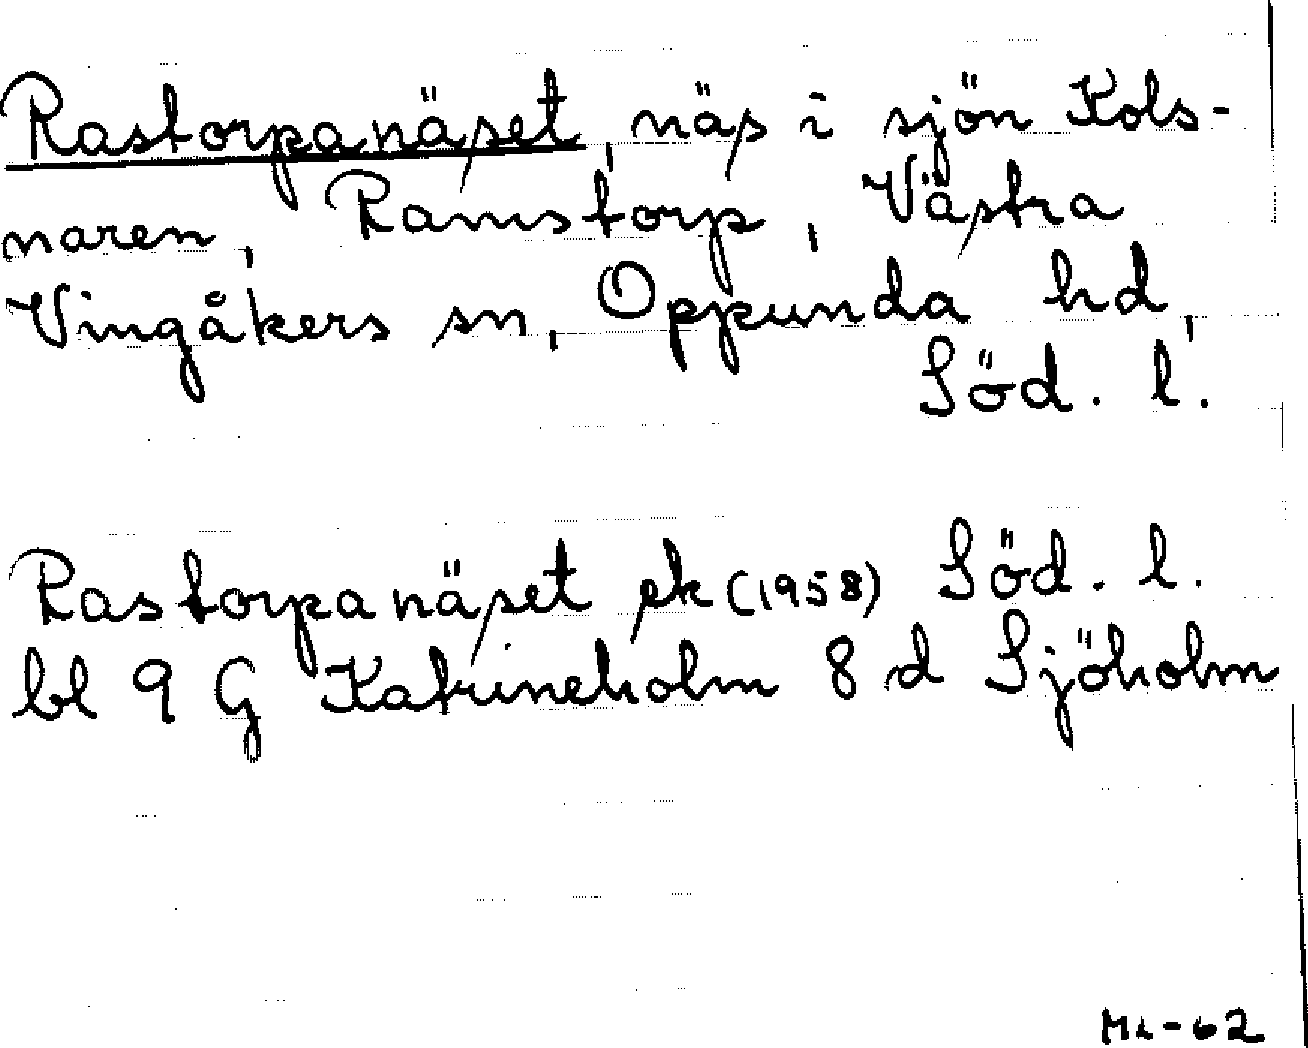 Rastorpanäset, näs i sjön Kols-
naren, Ramstorp, Västra
Vingåkers sn, Oppunda hd,
Söd. l.
Rastorpanäset ek (1958) Söd. l.
bl 9 G Katrineholm 8 d Sjöholm
ML-62